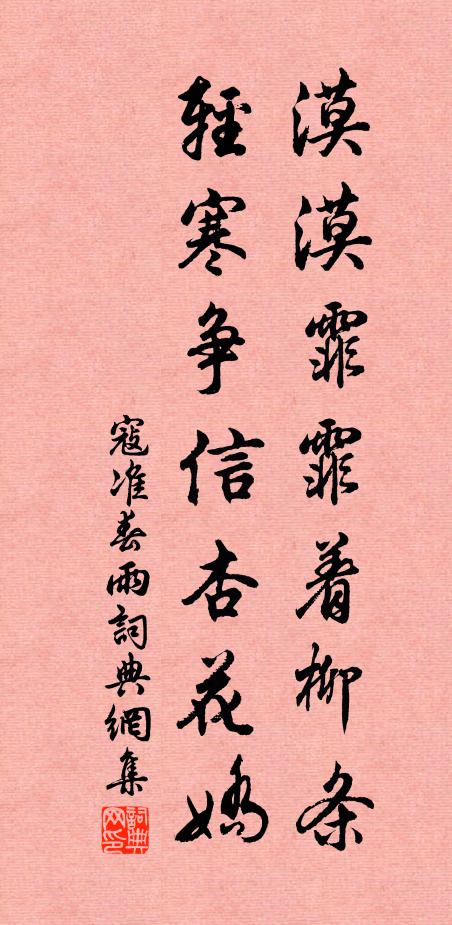 漠漠霏霏着柳条
轻寒争信杏花娇
寇准春雨詞典網集
詞典网印